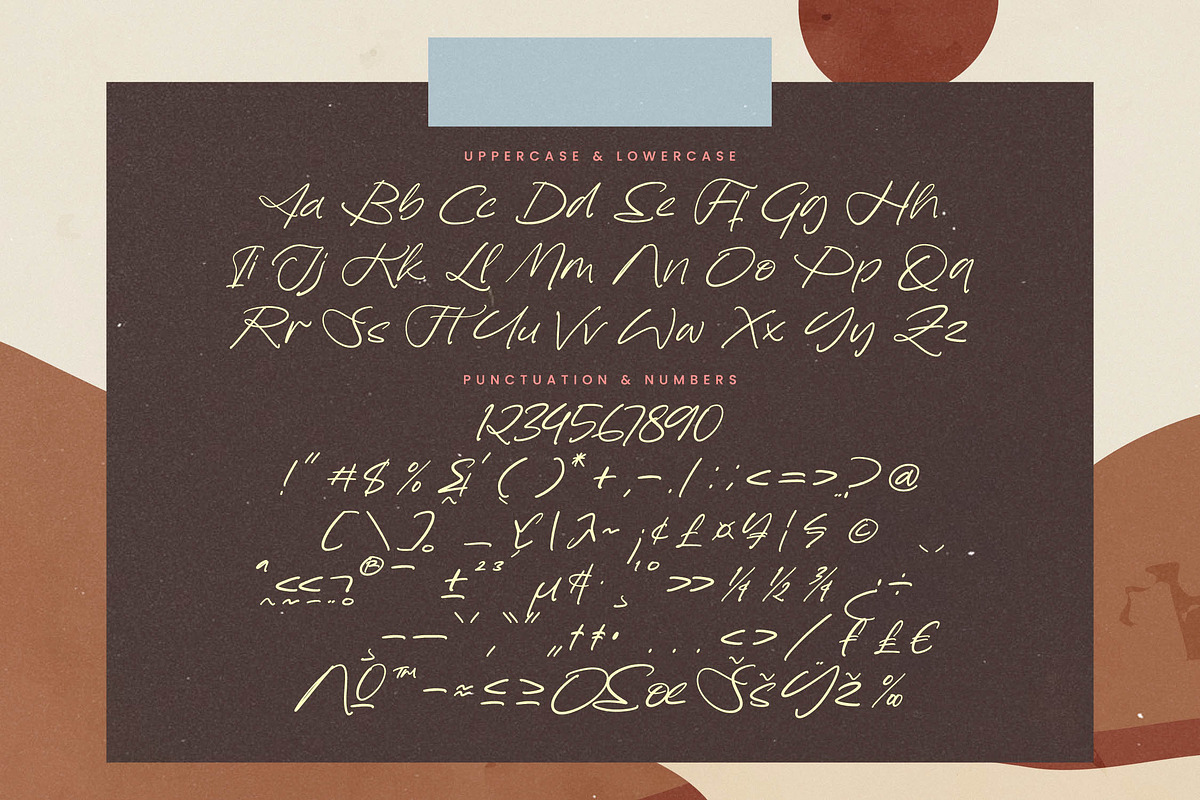 UPPERCASE & LOWERCASE
Aa Bb Cc Dd Ee Ff Gg Hh
Ii Jj Kk Ll Mm Nn Oo Pp Qq
Rr Ss Tt Uu Vv Ww Xx Yy Zz
PUNCTUATION & NUMBERS
1234567890
!" #$ % &' ( )* + , - . / : ; < = > ? @
[ \ ] _ { | } ~ ¡ ¢ £ ¤ ¥ ¦ § ©
ª << ¬ ® ¯ ± ² ³ µ · ¸ ¹ º >> ¼ ½ ¾ ¿ ÷
– — ‚ „ † ‡ • . . . < > / ₣ £ €
™ − ≈ ≤ ≥ Œ œ Š š Ÿ ž ‰